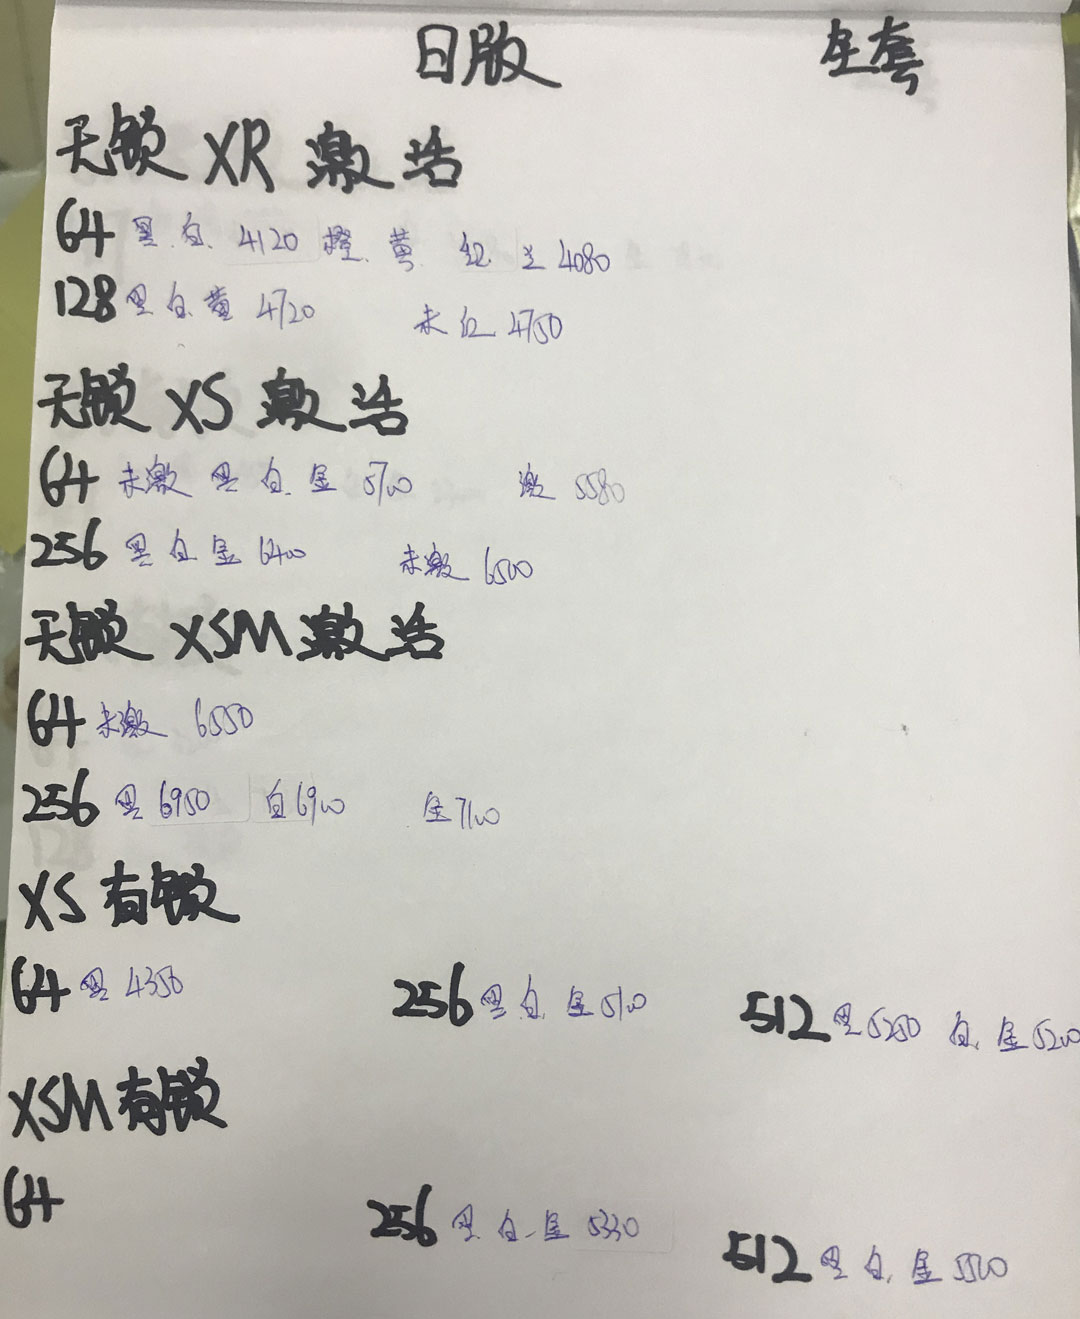 日版 全套
无锁 XR 激活
64 黑.白. 4120 橙.黄. 红 兰 4080
128 黑.白.黄 4720 未红 4750
无锁 XS 激活
64 未激 黑 白.金 5700 激 5580
256 黑 白 金 6400 未激 6500
无锁 XSM 激活
64 未激 6550
256 黑 6950 白 6900 金 7100
XS 有锁
64 黑 4350 256 黑.白.金 5100 512 黑 5250 白.金 5200
XSM 有锁
64 256 黑.白.金 5330 512 黑 白.金 5500